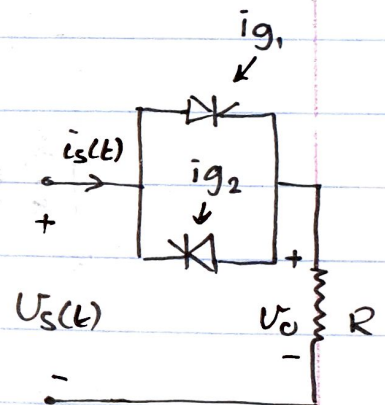 ig₁
is(t)
ig₂
+
+
Us(t)
Vo
R
-
-